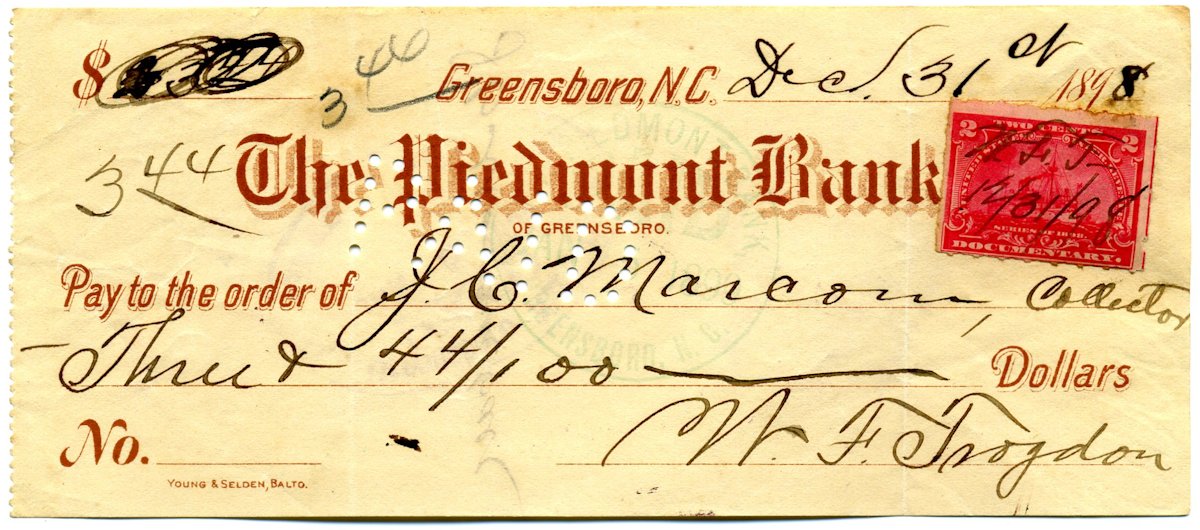 $ 344
3 44
Greensboro, N.C. Dec. 31st 1898
3 44
The Piedmont Bank
OF GREENSBORO.
2 TWO CENTS 2
W. F. T.
12/31/98
SERIES OF 1898
DOCUMENTARY.
Pay to the order of J. C. Marcom, Collector
Three & 44/100 Dollars
No.
W. F. Trogdon
YOUNG & SELDEN, BALTO.